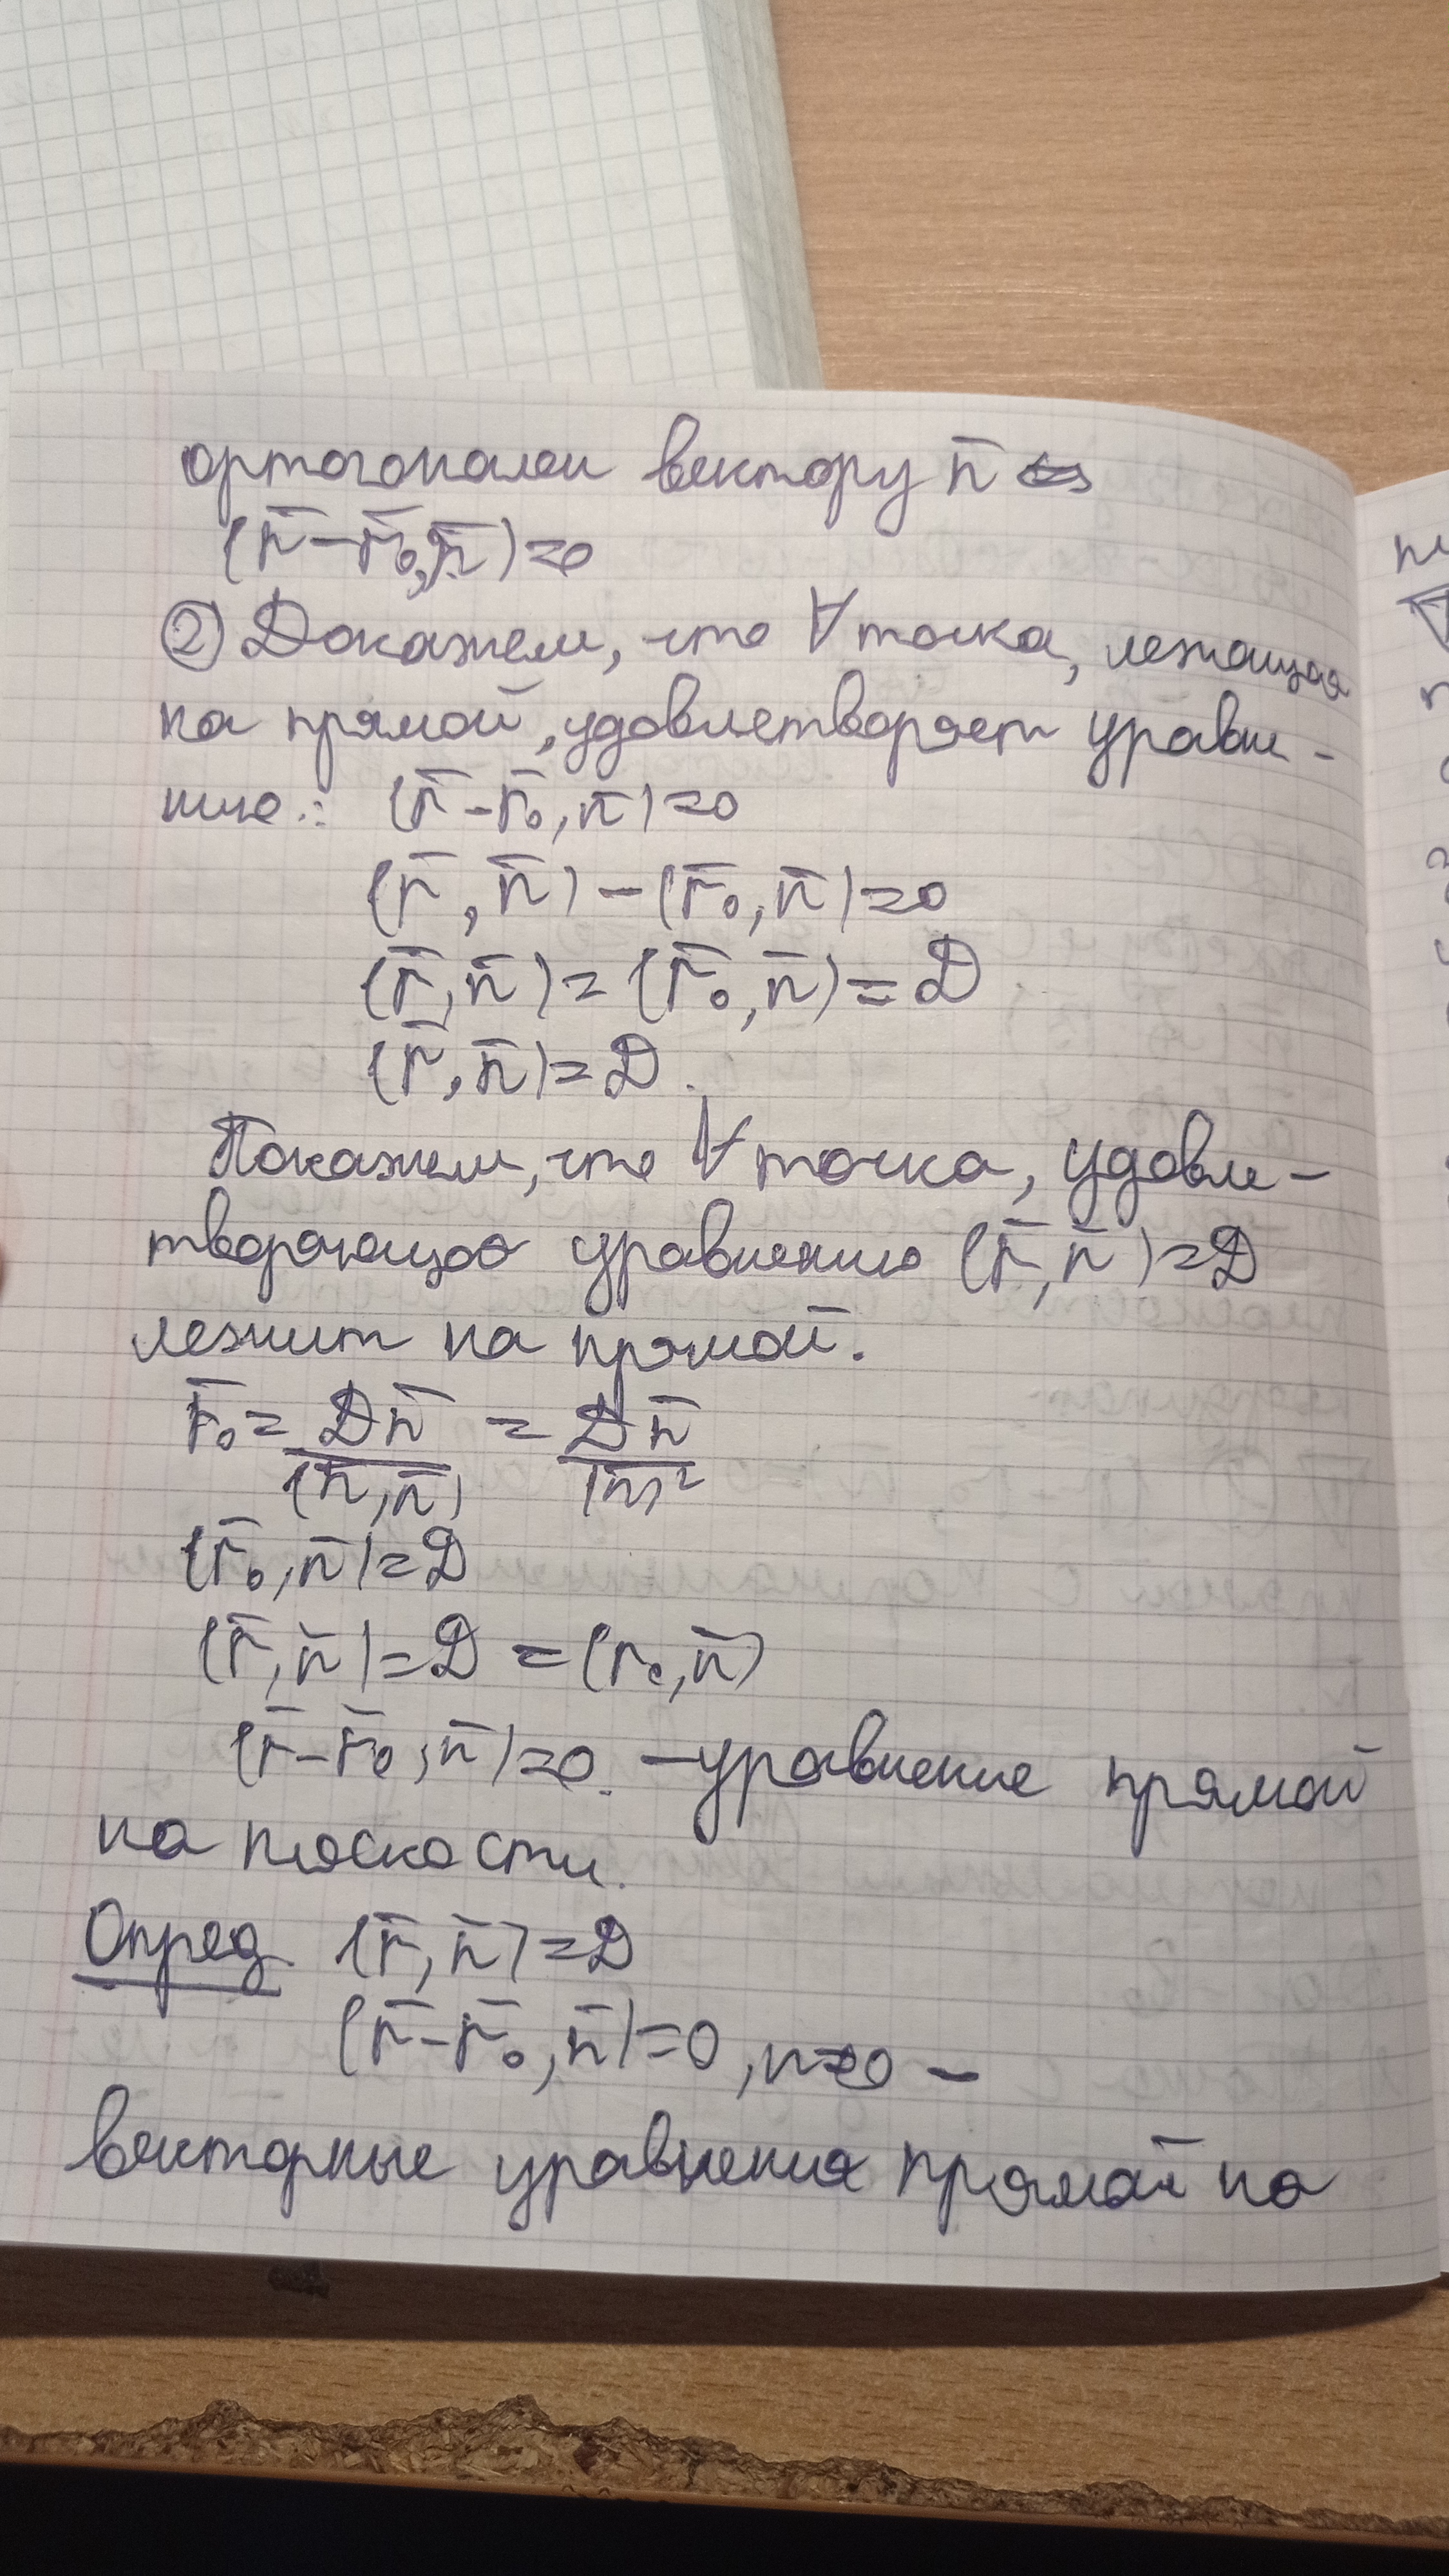 ортогонален вектору n̄ ⇔
(r̄ − r̄₀, n̄) = 0
② Докажем, что ∀ точка, лежащая
на прямой, удовлетворяет уравне-
нию: (r̄ − r̄₀, n̄) = 0
(r̄, n̄) − (r̄₀, n̄) = 0
(r̄, n̄) = (r̄₀, n̄) = D
(r̄, n̄) = D.
Покажем, что ∀ точка, удовле-
творяющая уравнению (r̄, n̄) = D
лежит на прямой.
r̄₀ = Dn̄/(n̄, n̄) = Dn̄/|n̄|²
(r̄₀, n̄) = D
(r̄, n̄) = D = (r₀, n̄)
(r̄ − r̄₀, n̄) = 0. − уравнение прямой
на плоскости.
Опред. (r̄, n̄) = D
(r̄ − r̄₀, n̄) = 0, n≠0 −
векторные уравнения прямой на